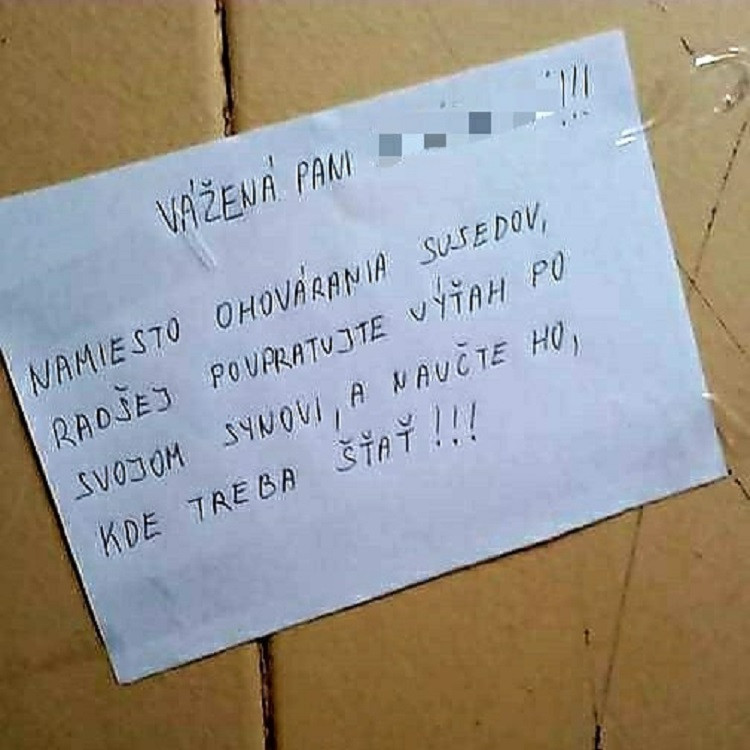 VÁŽENÁ PANI !!!
NAMIESTO OHOVÁRANIA SUSEDOV,
RADŠEJ POUPRATUJTE VÝŤAH PO
SVOJOM SYNOVI, A NAUČTE HO,
KDE TREBA ŠŤAŤ!!!